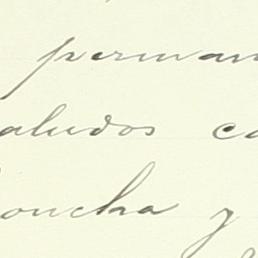 perman
aludos ca
oncha y